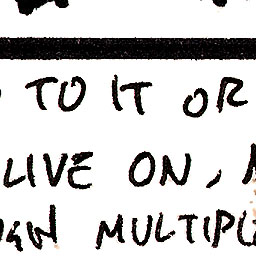 TO IT OR
LIVE ON,
MULTIPL